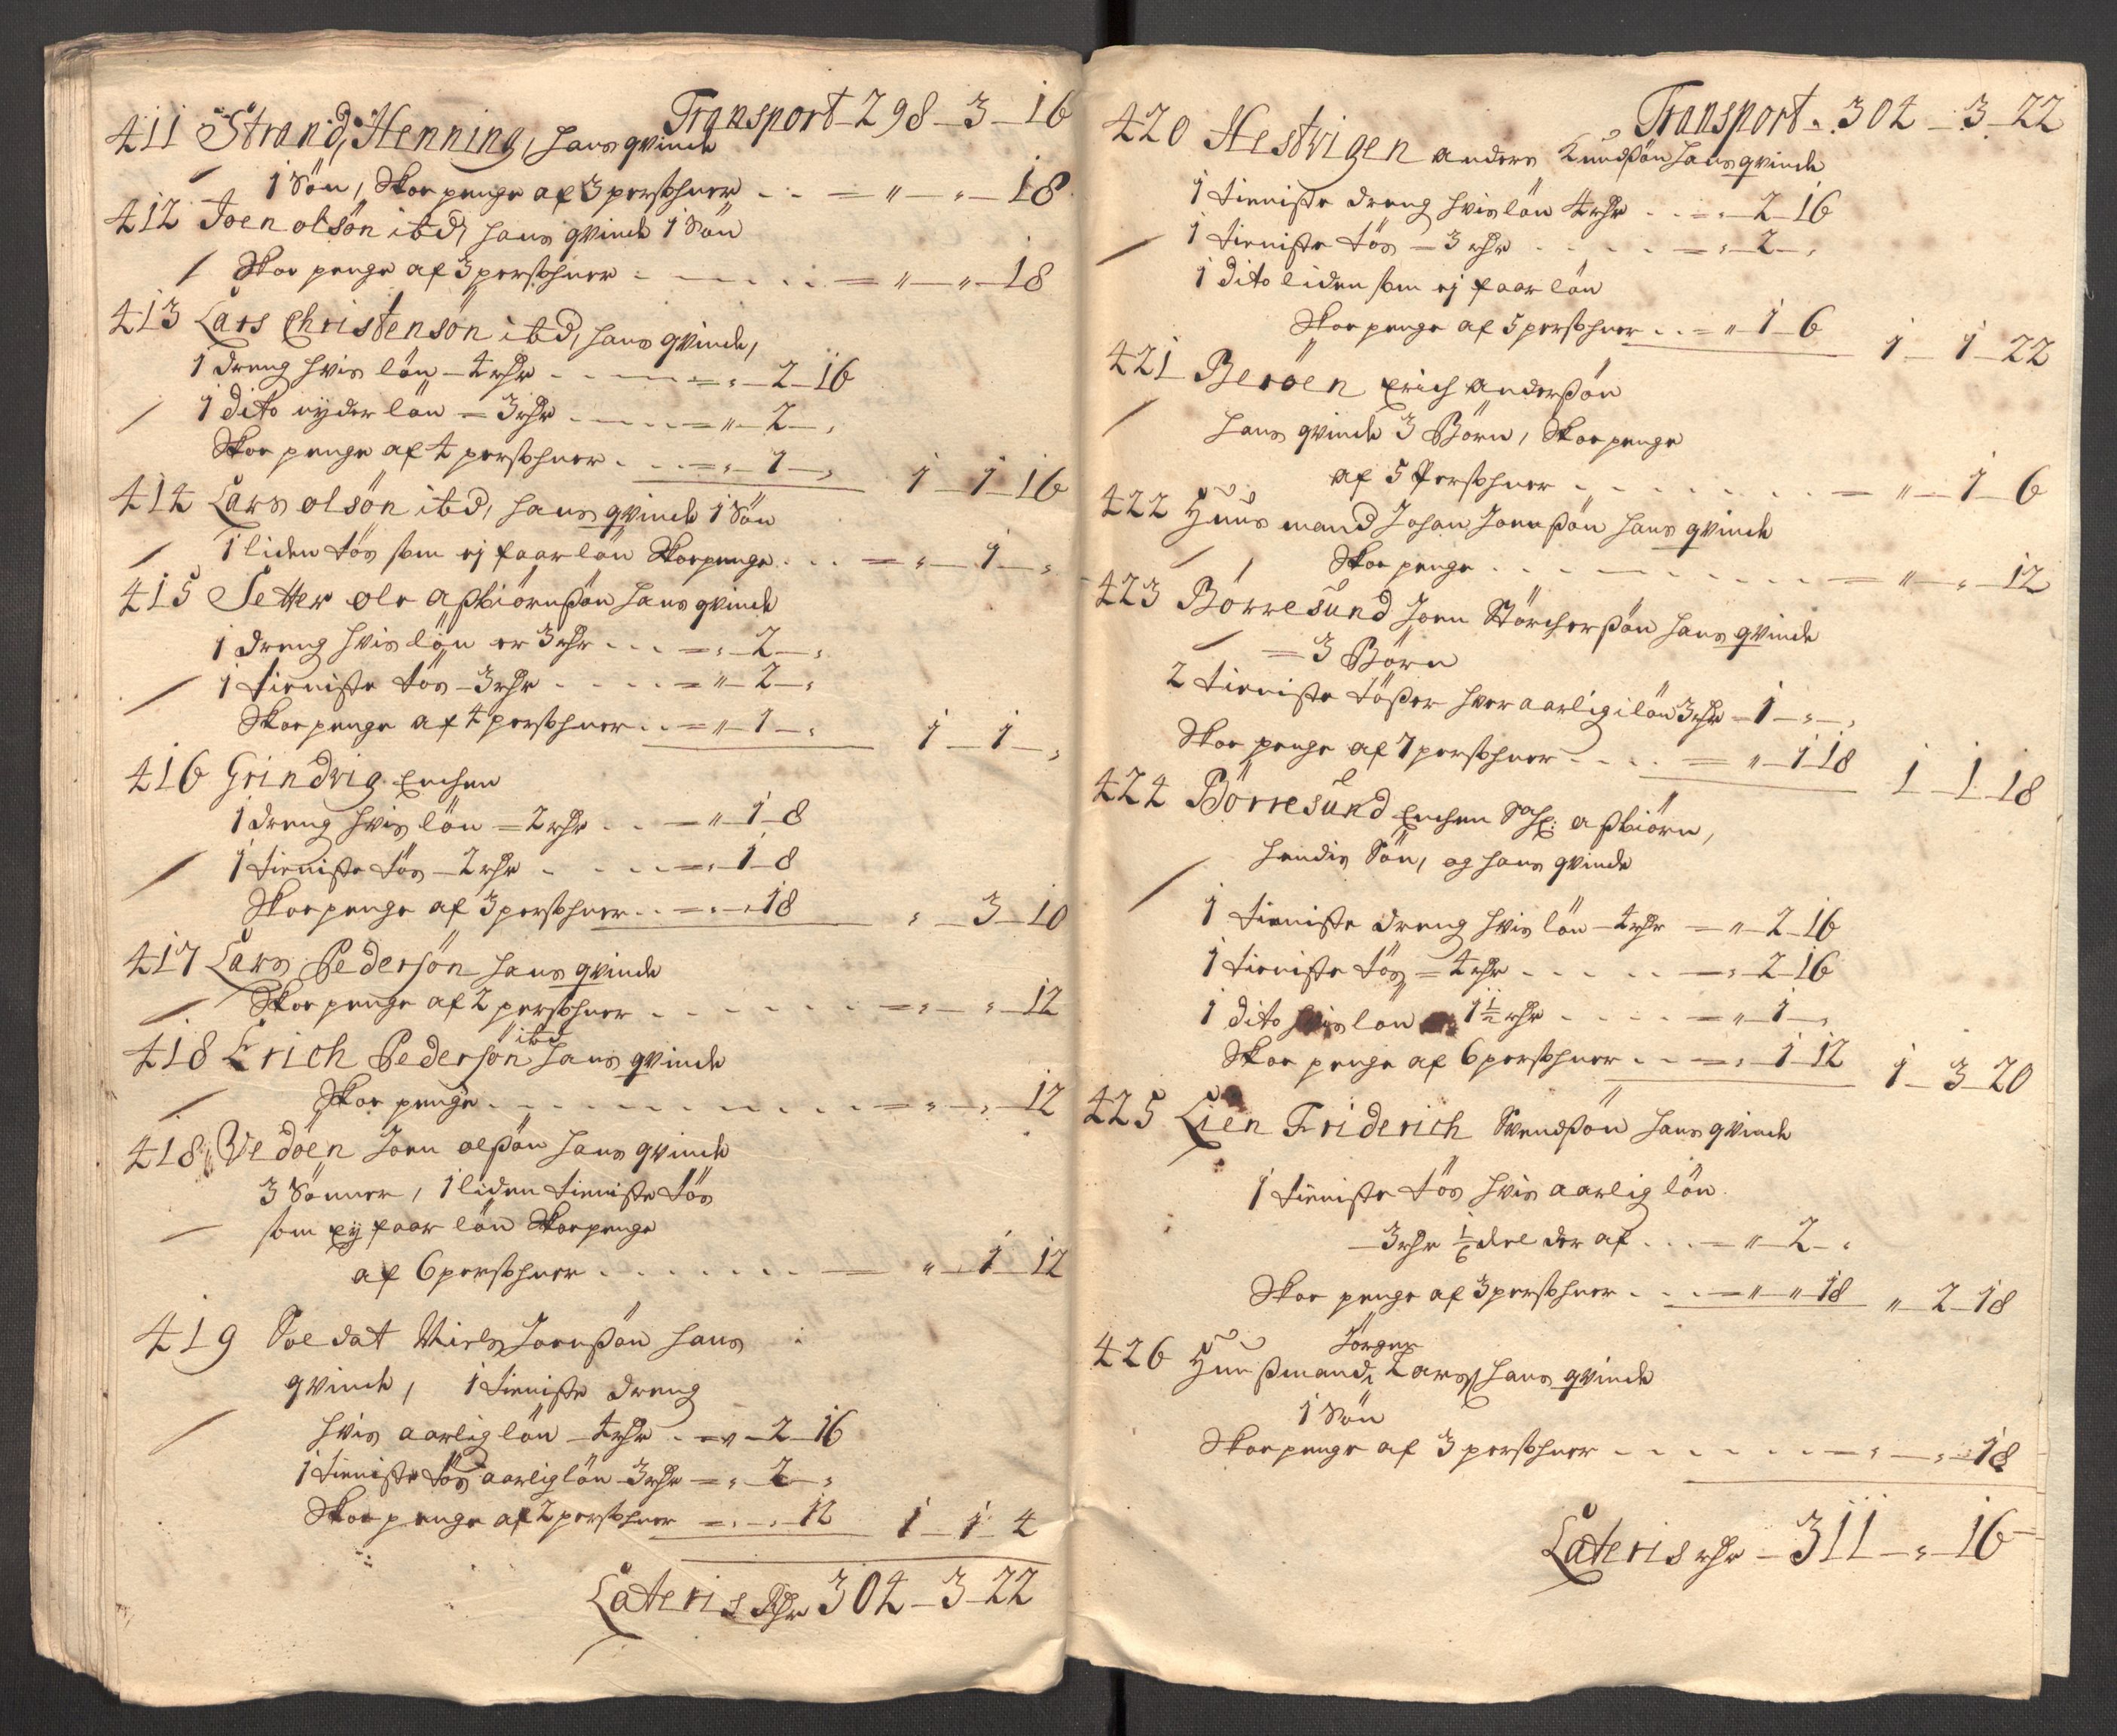 Transport - 298 - 3 - 16
411 Strand, Henning, hans qvinde
1 Søn, Skoe penge af 3 persohner . . = " - " - 18
412 Joen olsön ibd, hans qvinde 1 Søn
Skoe penge af 3 persohner . . . = " - " - 18
413 Lars Christensön ibd, hans qvinde,
1 dreng hvis lön - 4 rdr . . . = " - 2 - 16
1 dito nyder lön = 3 rdr . . . = " - 2 - "
Skoe penge af 4 persohner . . . = " - 1 - " 1 - 1 - 16
414 Lars olsön ibd, hans qvinde 1 Søn
1 liden tös som ej faar lön Skoepenge . . . = " - 1 - "
415 Setter ole Asbiörnsøn hans qvinde
1 dreng hvis lön er 3 rdr . . . = " - 2 - "
1 tieniste tös - 3 rdr . . . . = " - 2 - "
Skoe penge af 4 persohner . . = " - 1 - " 1 - 1 - "
416 Grindvig Enchen
1 dreng hvis lön = 2 rdr . . = " 1 - 8
1 tieniste tös - 2 rdr . . . = " 1 - 8
Skoe penge af 3 persohner . . = " - " 18 " - 3 - 10
417 Lars Pedersön hans qvinde
Skoe penge af 2 persohner . . . . . = " - " - 12
418 Erich Pedersön ibd hans qvinde
Skoe penge . . . . . . . . = " - " - 12
418 Vedöen Joen olssön hans qvinde
3 Sönner, 1 liden tieniste tös
som ey faar lön Skoepenge
af 6 persohner . . . . . . . = " - 1 - 12
419 Soldat Niels Joenssön hans
qvinde, 1 tieniste dreng
hvis aarlig lön - 4 rdr . = " - 2 - 16
1 tieniste tös aarlig lön - 3 rdr = " - 2 - "
Skoe penge af 2 persohner = " - " - 12 1 - 1 - 4
Lateris Rdr 304 - 3 - 22
Transport - 304 - 3 - 22
420 Hestvigen anders Knudsøn hans qvinde
1 tieniste dreng hvis lön 4 rdr . . = " - 2 - 16
1 tieniste tös = 3 rdr . . . . = " - 2 - "
1 dito liden som ej faar lön
Skoe penge af 5 persohner . . = " 1 - 6 1 - 1 - 22
421 Beröen Erich anderssön
hans qvinde 3 Börn, Skoe penge
af 5 Persohner . . . . . . . . = " - 1 - 6
422 Huusmand Johan Joenssön hans qvinde
Skoe penge . . . . . . . . = " - " - 12
423 Börresund Joen Störchersøn hans qvinde
= 3 Börn
2 tieniste tösser hver aarlig i lön 3 rdr - 1 - " - "
Skoe penge af 7 persohner . . . . = " - 1 18 1 - 1 - 18
424 Börresund Enchen Sahl: asbiörn,
hendis Søn, og hans qvinde
1 tieniste dreng hvis lön - 4 rdr = " - 2 - 16
1 tieniste tös = 4 rdr . . . . = " 2 - 16
1 dito hvis lön 1 1/2 rdr . . . . = " - 1 - "
Skoe penge af 6 persohner . . = " - 1 - 12 1 - 3 - 20
425 Lien Friderich Svendsøn hans qvinde
1 tieniste tös hvis aarlig lön
- 3 rdr 1/6 del der af . . . = " - 2 - "
Skoe penge af 3 persohner . . . = " - " 18 " - 2 - 18
426 Huusmand Lars Jörgens hans qvinde
1 Søn
Skoe penge af 3 persohner . . . . . . = " - " - 18
Lateris rdr - 311 - " - 16